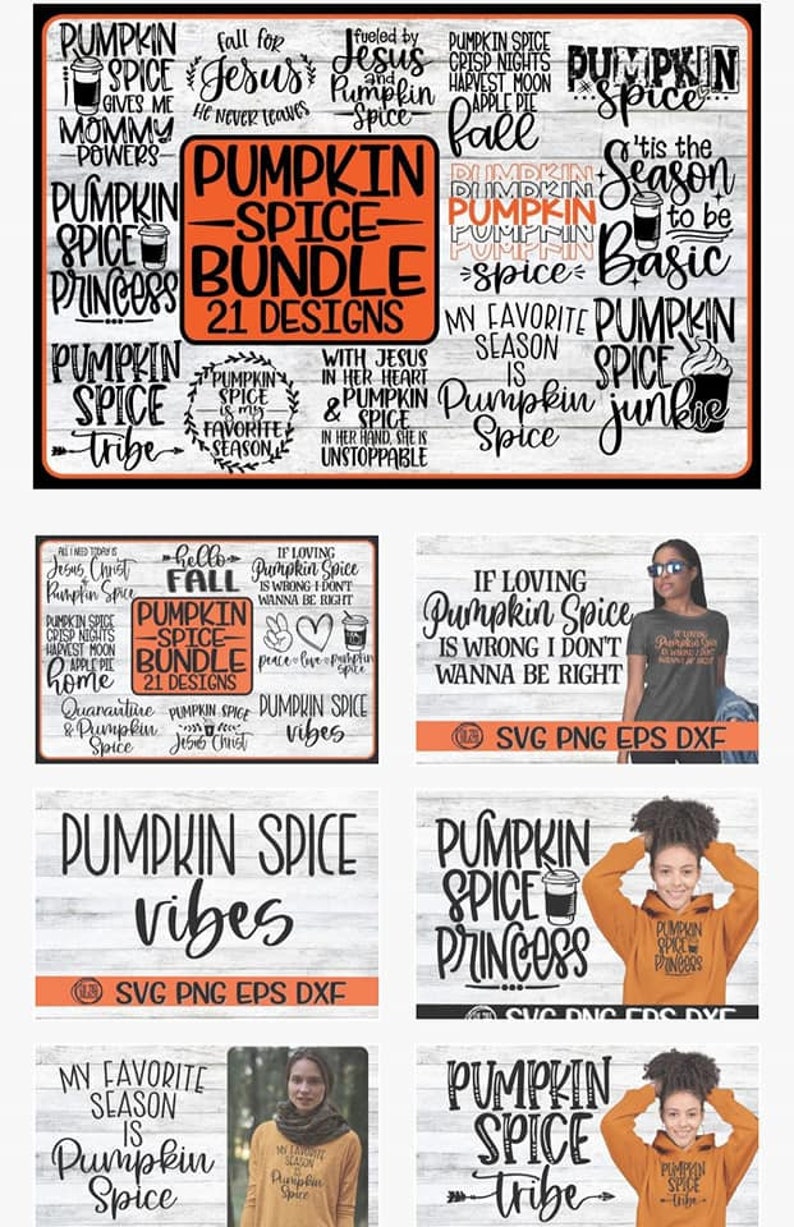 PUMPKIN
SPICE
GIVES ME
MOMMY
POWERS
fall for
Jesus
HE NEVER LEAVES
fueled by
Jesus
and
Pumpkin
Spice
PUMPKIN SPICE
CRISP NIGHTS
HARVEST MOON
APPLE PIE
fall
PUMPKIN
Spice
PUMPKIN
SPICE
PRINCESS
PUMPKIN
SPICE
BUNDLE
21 DESIGNS
PUMPKIN
PUMPKIN
PUMPKIN
PUMPKIN
PUMPKIN
spice
'tis the
Season
to be
Basic
PUMPKIN
SPICE
tribe
PUMPKIN
SPICE
is my
FAVORITE
SEASON
WITH JESUS
IN HER HEART
& PUMPKIN
SPICE
IN HER HAND, SHE IS
UNSTOPPABLE
MY FAVORITE
SEASON
IS
Pumpkin
Spice
PUMPKIN
SPICE
junkie
ALL I NEED TODAY IS
Jesus Christ
&
Pumpkin Spice
hello
FALL
IF LOVING
Pumpkin Spice
IS WRONG I DON'T
WANNA BE RIGHT
PUMPKIN SPICE
CRISP NIGHTS
HARVEST MOON
APPLE PIE
home
PUMPKIN
SPICE
BUNDLE
21 DESIGNS
peace love pumpkin
spice
Quarantine
& Pumpkin
Spice
PUMPKIN SPICE
Jesus Christ
PUMPKIN SPICE
vibes
IF LOVING
Pumpkin Spice
IS WRONG I DON'T
WANNA BE RIGHT
IF LOVING
Pumpkin Spice
IS WRONG I DON'T
WANNA BE RIGHT
SVG PNG EPS DXF
PUMPKIN SPICE
vibes
SVG PNG EPS DXF
PUMPKIN
SPICE
PRINCESS
PUMPKIN
SPICE
PRINCESS
SVG PNG EPS DXF
MY FAVORITE
SEASON
IS
Pumpkin
Spice
MY FAVORITE
SEASON
IS
Pumpkin
Spice
PUMPKIN
SPICE
tribe
PUMPKIN
SPICE
tribe